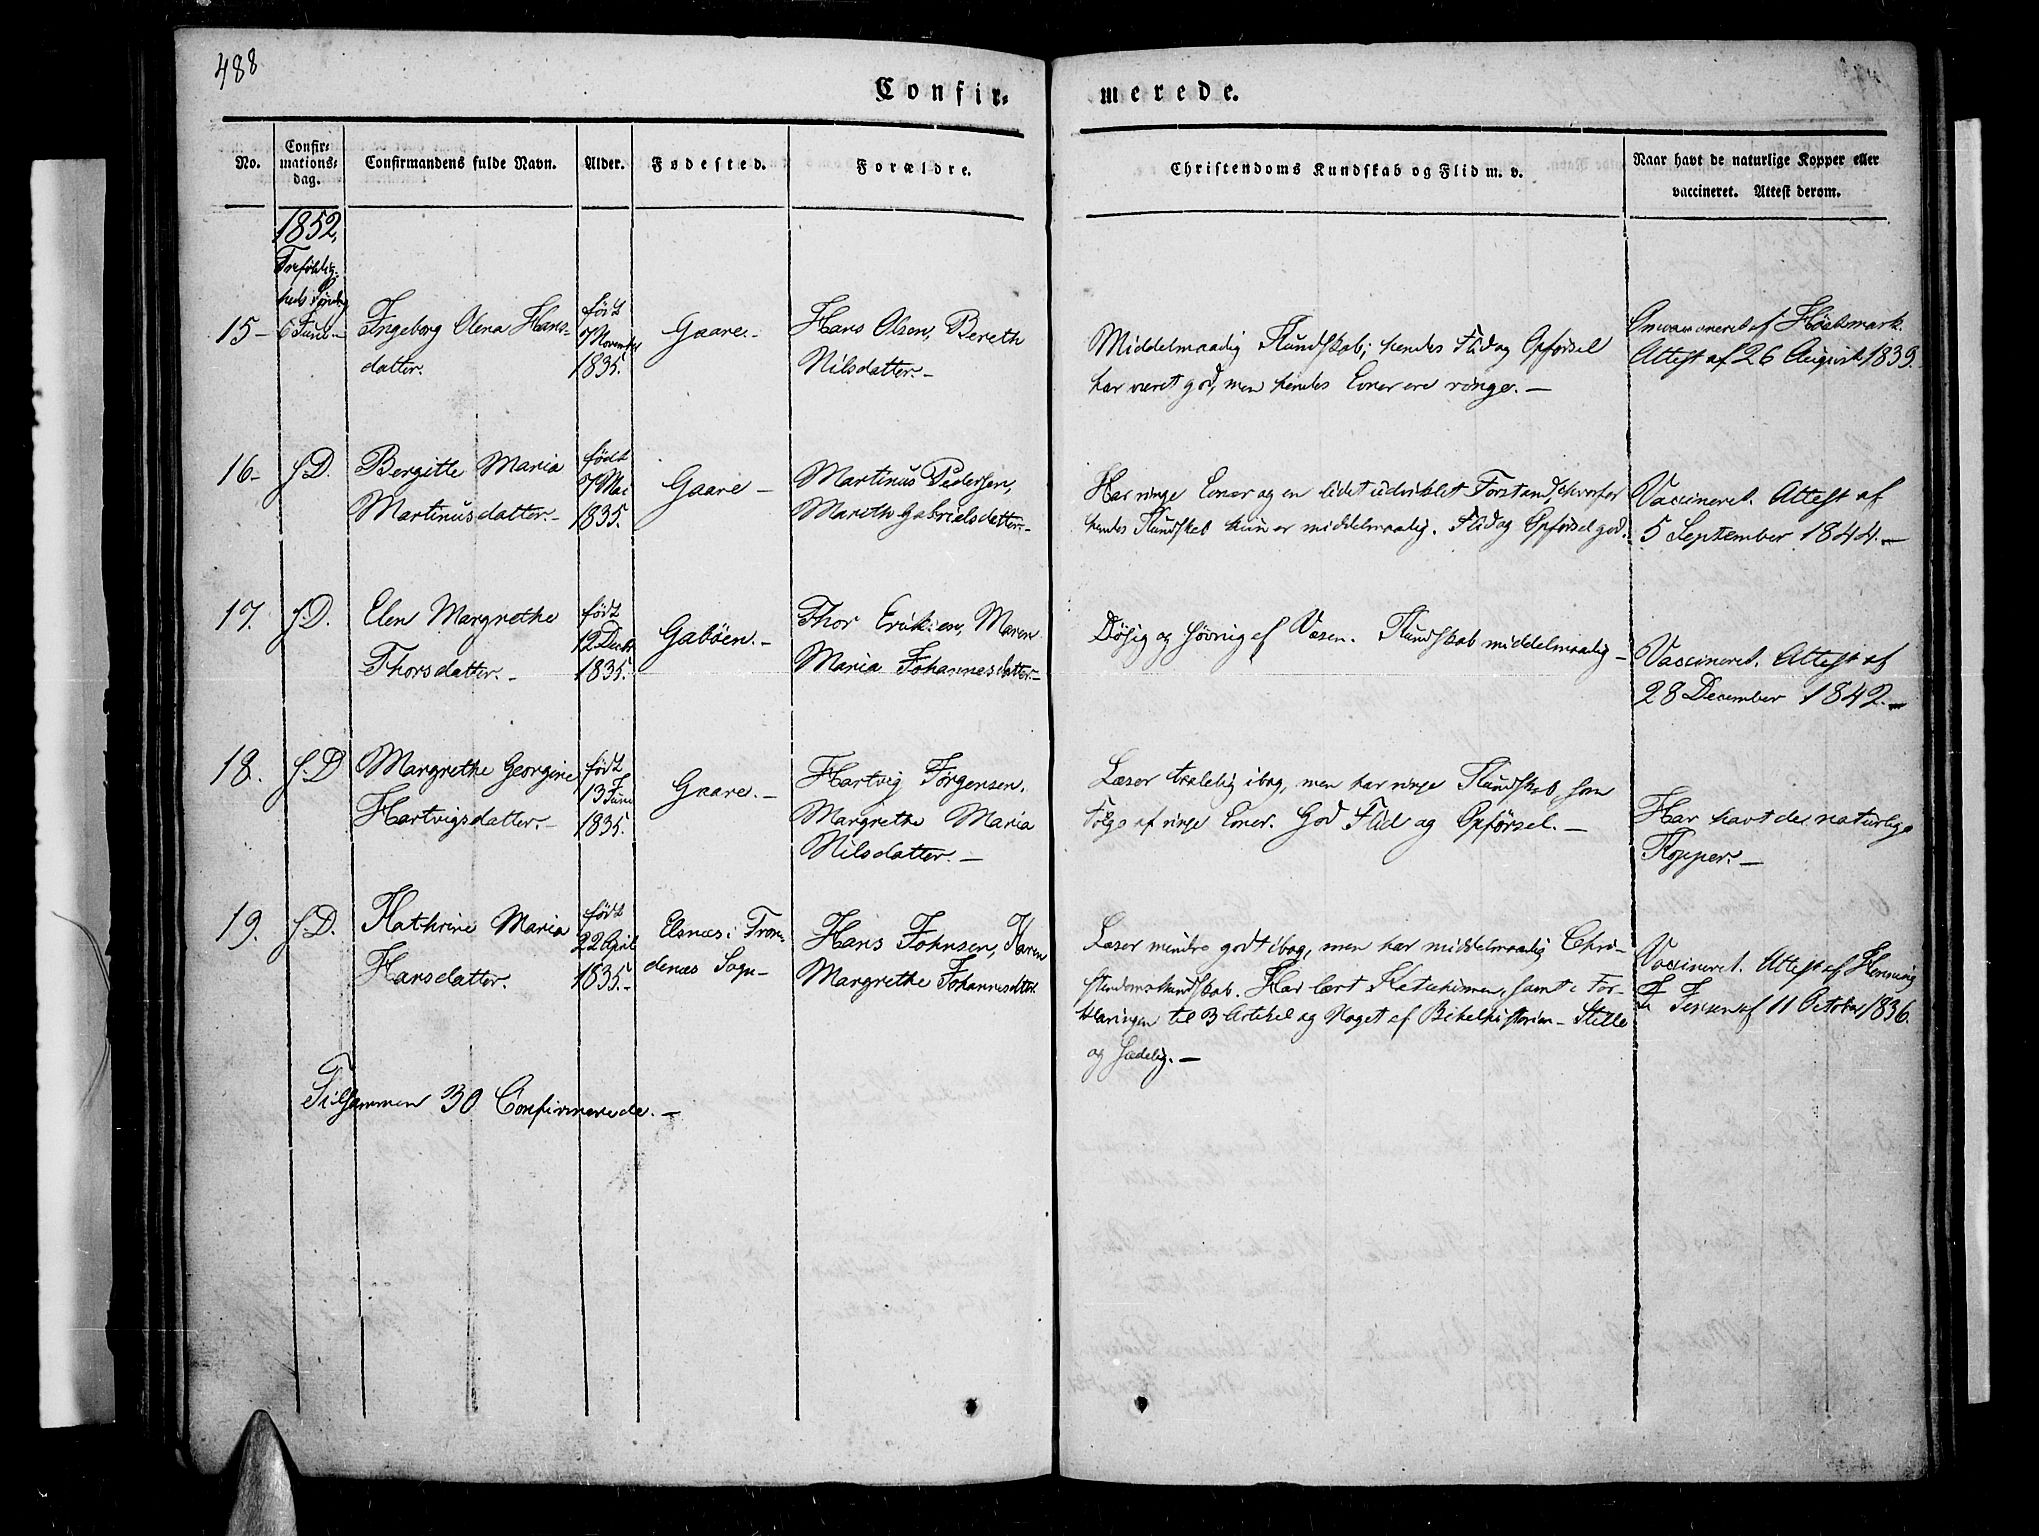 488
Confir-
merede.
No.
Confir-
mations-
dag.
Confirmandens fulde Navn.
Alder.
Fødested.
Forældre.
Christendoms Kundskab og Flid m. v.
Naar havt de naturlige Kopper eller
vaccineret. Attest derom.
1852,
Trefoldig-
heds Søndag
15- 6 Juni- Ingeborg Olena Hans-
datter.
født
7 November
1835.
Gaare.-
Hans Olsen, Bereth
Nilsdatter.-
Middelmaadig Kundskab; hendes Flid og Opførsel
har været god, men hendes Evner ere ringe.-
af Høckmark.
Attest af 26 August 1839.
16- s.D. Bergitte Maria
Martinusdatter.-
født
7 Mai
1835.
Gaare-
Martinus Pedersen,
Mareth Gabrielsdatter.-
Har ringe Evner og en lidet udviklet Forstand, hvorfor
hendes Kundskab kun er middelmaalig. Flid og Opførsel god.
Vaccineret. Attest af
5 September 1844.-
17. s.D. Elen Margrethe
Thorsdatter.-
født
12 Decbr
1835.
Gabøen.-
Thor Eriksen, Maren
Maria Johannesdatter.-
Døsig og søvnig af Væsen. Kundskab middelmaalig-
Vaccineret. Attest af
28 December 1842.-
18. s.D Margrethe Georgine
Hartvigsdatter.-
født
13 Juni
1835.
Gaare.-
Hartvig Jørgensen,
Margrethe Maria
Nilsdatter.-
Læser taalelig i bog, men har ringe Kundskab som
Følge af ringe Evner. God Flid og Opførsel.-
Har havt de naturlige
Kopper.-
19. s.D. Kathrine Maria
Hansdatter.
født
22 April
1835.-
Elsnæs i Tron-
denæs Sogn-
Hans Johnsen, Karen
Margrethe Johannesdtr.
Læser mindre godt i bog, men har middelmaadig Chri-
stendomskundskab. Har lært Katechismen, samt i For-
klaringen til 3 Artikel og Noget af Bibelhistorien- Stille
og sædelig.-
Vaccineret. Attest af Henning
J. Jensen af 11 October 1836.
Tilsammen 30 Confirmerede.-